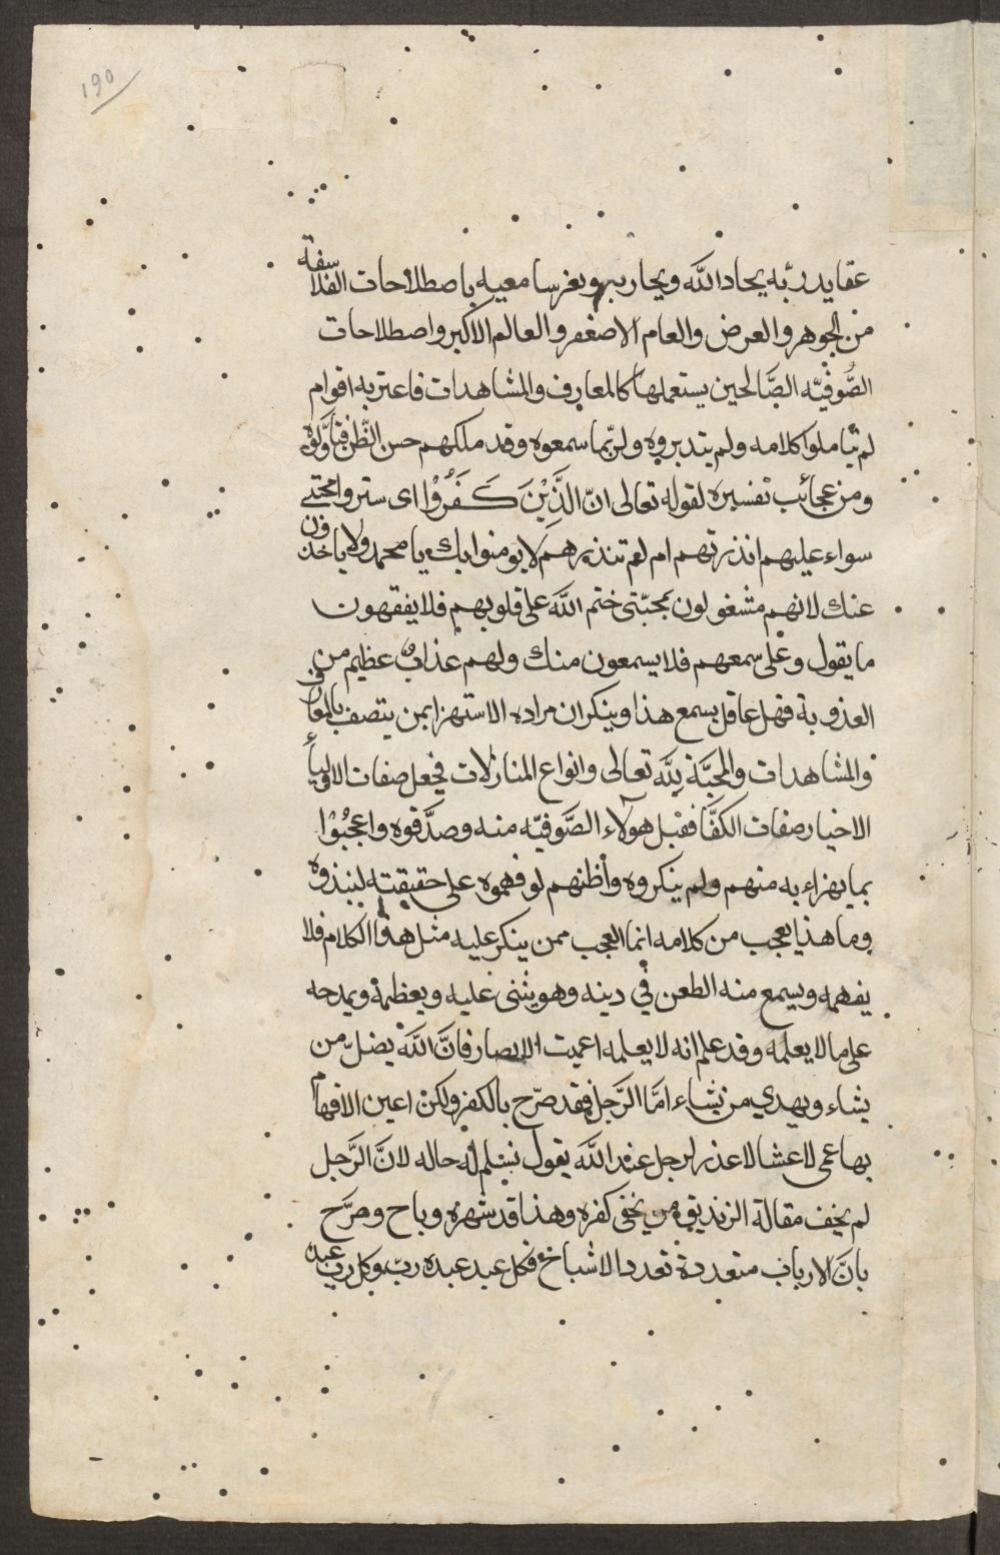 ١٩٥
عقايد ربه يحاد الله ويحاربه ويغر سامعيه باصطلاحات الفلاسفة
من الجوهر والعرض والعام الاصغر والعالم الاكبر واصطلاحات
الصُّوفيّه الصَّالحين يستعملها كالمعارف والمشاهدات فاعتر به اقوام
لم يتاملوا كلامه ولم يتدبروه ولربّما سمعوه وقد ملكهم حسن الظّن فتاوّلوه
ومن عجائب تفسيره لقوله تعالى انّ الذَّيْنَ كَفَرُوْا اى ستروا محبتي
سواء عليهم انذرتهم ام لم تنذرهم لا يومنوا بك يا محمد ولا ياخذون
عنك لانهم مشغولون بمحبّتى ختم الله على قلوبهم فلا يفقهون
ما يقول وعلى سمعهم فلا يسمعون منك ولهم عذاب عظيم من
العذوبة فهل عاقل يسمع هذا وينكر ان مراده الاستهزا بمن يتصف بالمعارف
والمشاهدات والمحبَّة للّه تعالى وانواع المنازلات فجعل صفات الاوليأ
الاخيار صفات الكفّا فقبل هولآء الصَّوفيّه منه وصدَّقوه واعجبُوْا
بما يهزاء به منهم ولم ينكروه واظنهم لو فهموه على حقيقته لنبذوه
وما هذا يعجب من كلامه انما العجب ممن ينكر عليه مثل هذا الكلام فلا
يفهمه ويسمع منه الطعن في دينه وهو يثنى عليه ويعظمة ويمدحه
على ما لا يعلمه وقد علم انه لا يعلمه اعميت الابصار فانَّ اللَّه يضل من
يشاء ويهدي من يشاء امَّا الرَّجل فقد صرّح بالكفر ولكن اعين الافهام
بها عمى لا عشا لا عذر لرجل عند اللَّه يقول نسلم له حاله لانَّ الرَّجل
لم يخف مقالة الزنديق من يخفى كفره وهذا قد شهره وباح وصرَّح
بانَّ الارباب متعددة تعدد الاشباخ فكل عبد عبده ربّ وكل رب عبده